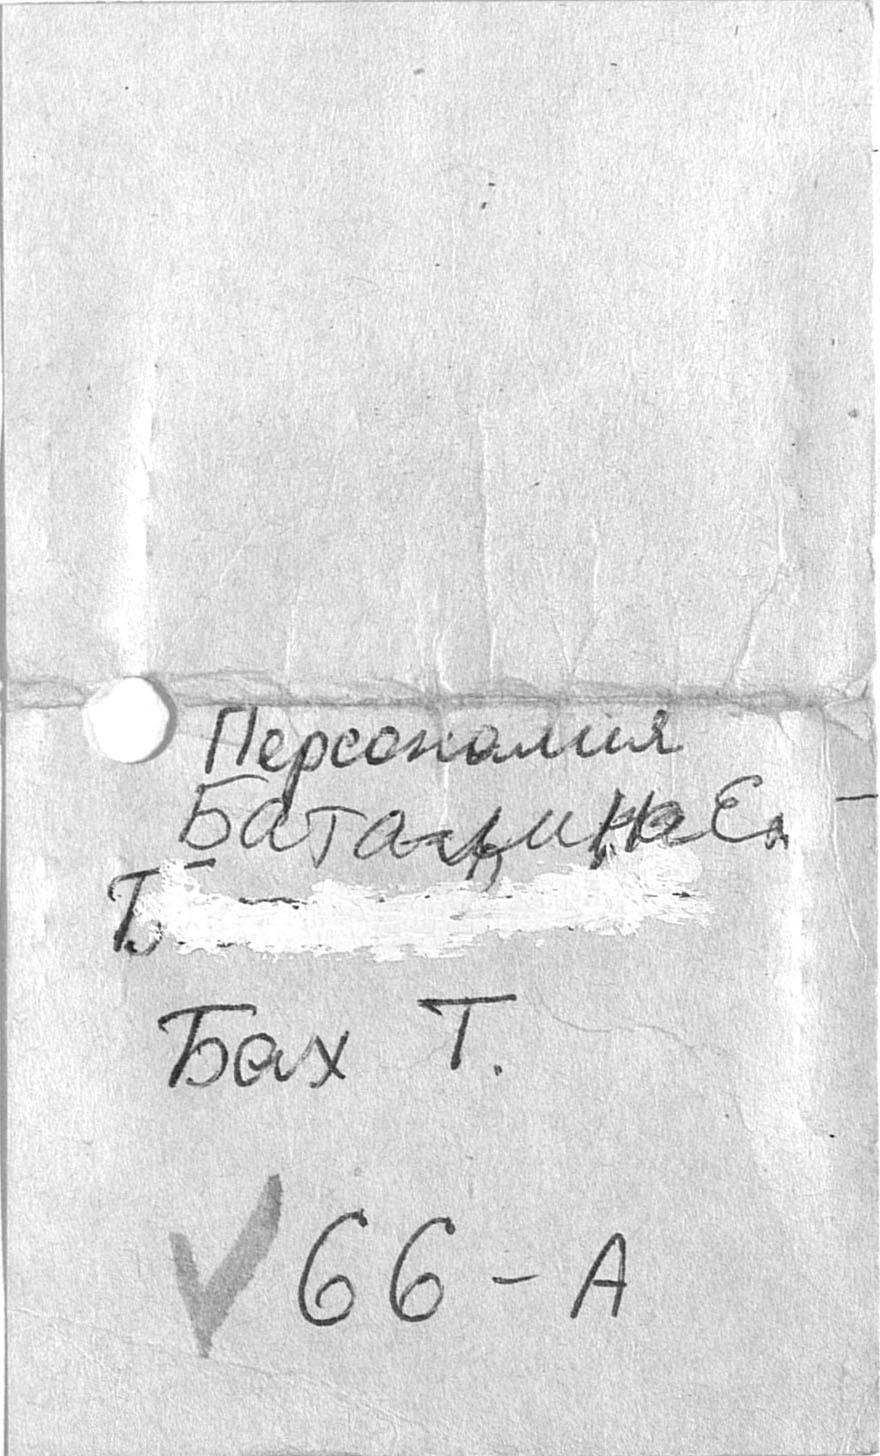 Персоналия
Баташина Е.
Б
Бах Т.
66-А